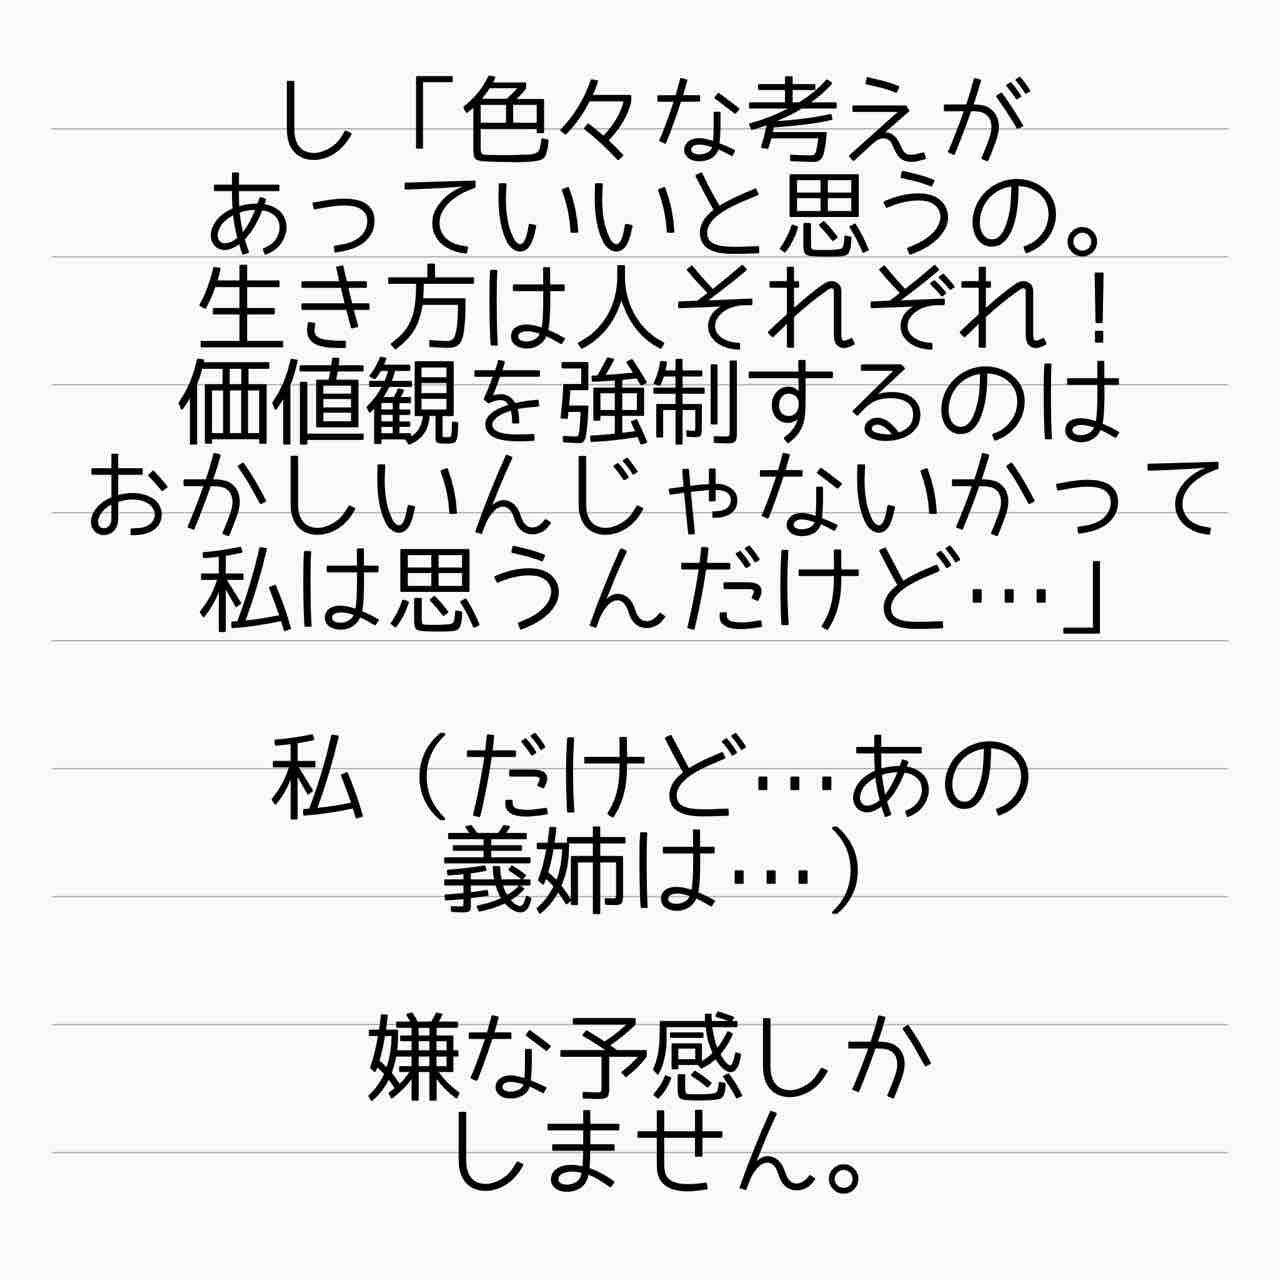 し「色々な考えが
あっていいと思うの。
生き方は人それぞれ！
価値観を強制するのは
おかしいんじゃないかって
私は思うんだけど…」
私（だけど…あの
義姉は…）
嫌な予感しか
しません。